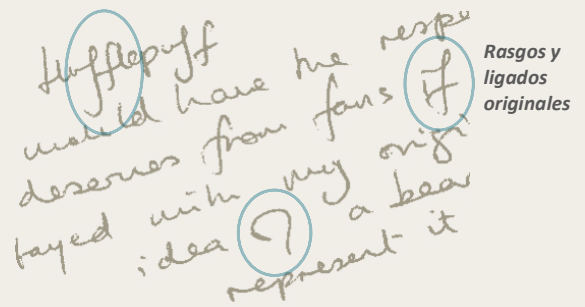 Hufflepuff
would have the respe
deserves from fans if
tayed with my origi
idea of a bear
represent it
Rasgos y
ligados
originales